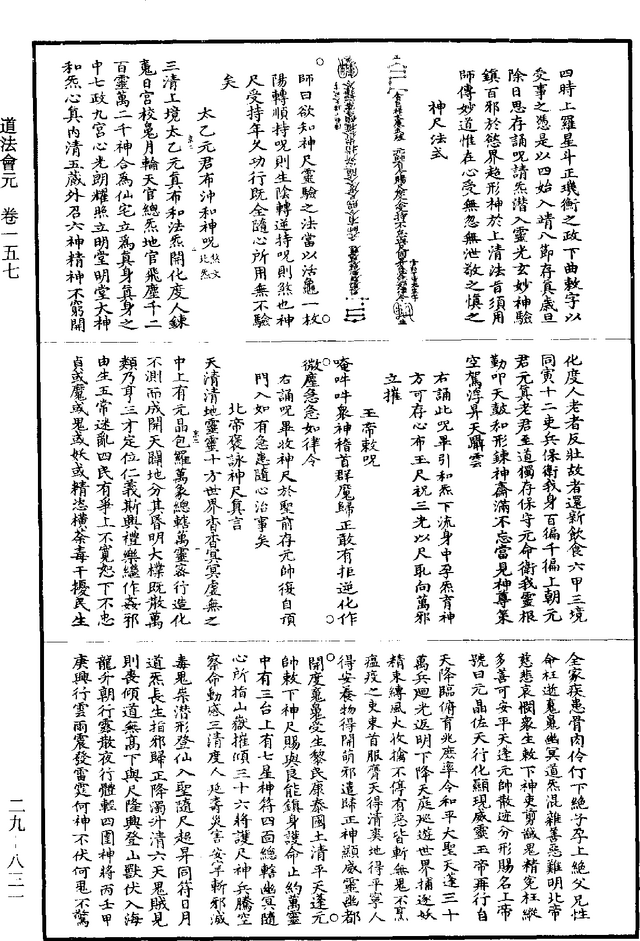 道法會元　卷一五七
二九—八三一
四時上羅星斗正璣衡之政下曲數字以
受事之憑是以四始入靖八節存真歲旦
除日思存誦呪請炁潜入靈光玄妙神驗
鎮百邪於慾界超形神於上清法旨須用
師傳妙道惟在心受無忽無泄敬之慎之
神尺法式
師曰欲知神尺靈驗之法當以活龜一枚
陽轉順持呪則生陰轉逆持呪則煞也神
尺受持年久功行既全隨心所用無不驗
矣
太乙元君布沖和神呪
三清上境太乙元真布和法炁開化度人鍊
魂日宮校魄月輪天官總炁地官飛塵千二
百靈萬二千神合為仙宅立為真身真身之
中七政九宮心光朗耀照立明堂明堂大神
和炁心真內清五藏外召六神精神不窮開
化度人老者反壯故者還新飲食六甲三境
同寅十二吏兵保衛我身百徧千徧上朝元
君元真老君至道獨存保守元命衛我靈根
勤叩天鼓和形鍊神齋滿不忘當見神尊策
空駕浮昇天驛雲
右誦此呪畢引和炁下流身中孕炁育神
方可存心布玉尺祝三光以尺耴向萬邪
立摧
玉帝敕呪
唵吽吽衆神稽首群魔歸正敢有拒逆化作
微塵急急如律令
右誦呪畢收神尺於聖前存元帥復自頂
門入如有急患隨心治事矣
北帝褒詠神尺真言
天清清地靈靈十方世界杳杳冥冥虛無之
中上有元晶包羅萬象總轄萬靈密行造化
不測而成開天闢地分其昏明大樸既散萬
類乃有三才定位仁義斯興禮樂繼作姦邪
由生五常迷亂四民有爭上不寬恕下不忠
貞或魔或鬼或妖或精恣橫荼毒干擾民生
全家疾患骨肉伶仃下絶子孕上絶父兄性
命枉逝魂魄幽冥道炁混雜善惡難明北帝
慈悲哀憫衆生敕下神吏剪誡鬼精冤枉縱
多善可安平天蓬元帥散迹分形賜名上帝
號曰元晶佐天行化顯現威靈玉帝再行自
天降臨俯育兆庶率令和平大聖天蓬三十
萬兵廻光返明下降天庭巡遊世界捕逐妖
精束縛風火收擒不停有惡皆斬無鬼不烹
瘟疫之吏束首服膺天得清爽地得平寧人
得安養物得開萌邪遣歸正神顯威靈幽都
開度魂魄受生黎民康泰國土清平天蓬元
帥敕下神尺賜與良能鎮身護命止約萬靈
中有三台上有七星神符四面總轄幽冥隨
心所指山嶽摧傾三十六將護尺神兵騰空
察命動感三清度人延壽災害安平斬邪滅
毒鬼祟潜形登仙入聖隨尺起昇同符日月
道炁長生指邪歸正降濁汴清六天鬼賊見
則喪傾道無高下與尺隆興登山獸伏入海
龍升朝行露散夜行體輕四圍神將丙壬甲
庚興行雲雨震發雷霆何神不伏何鬼不驚